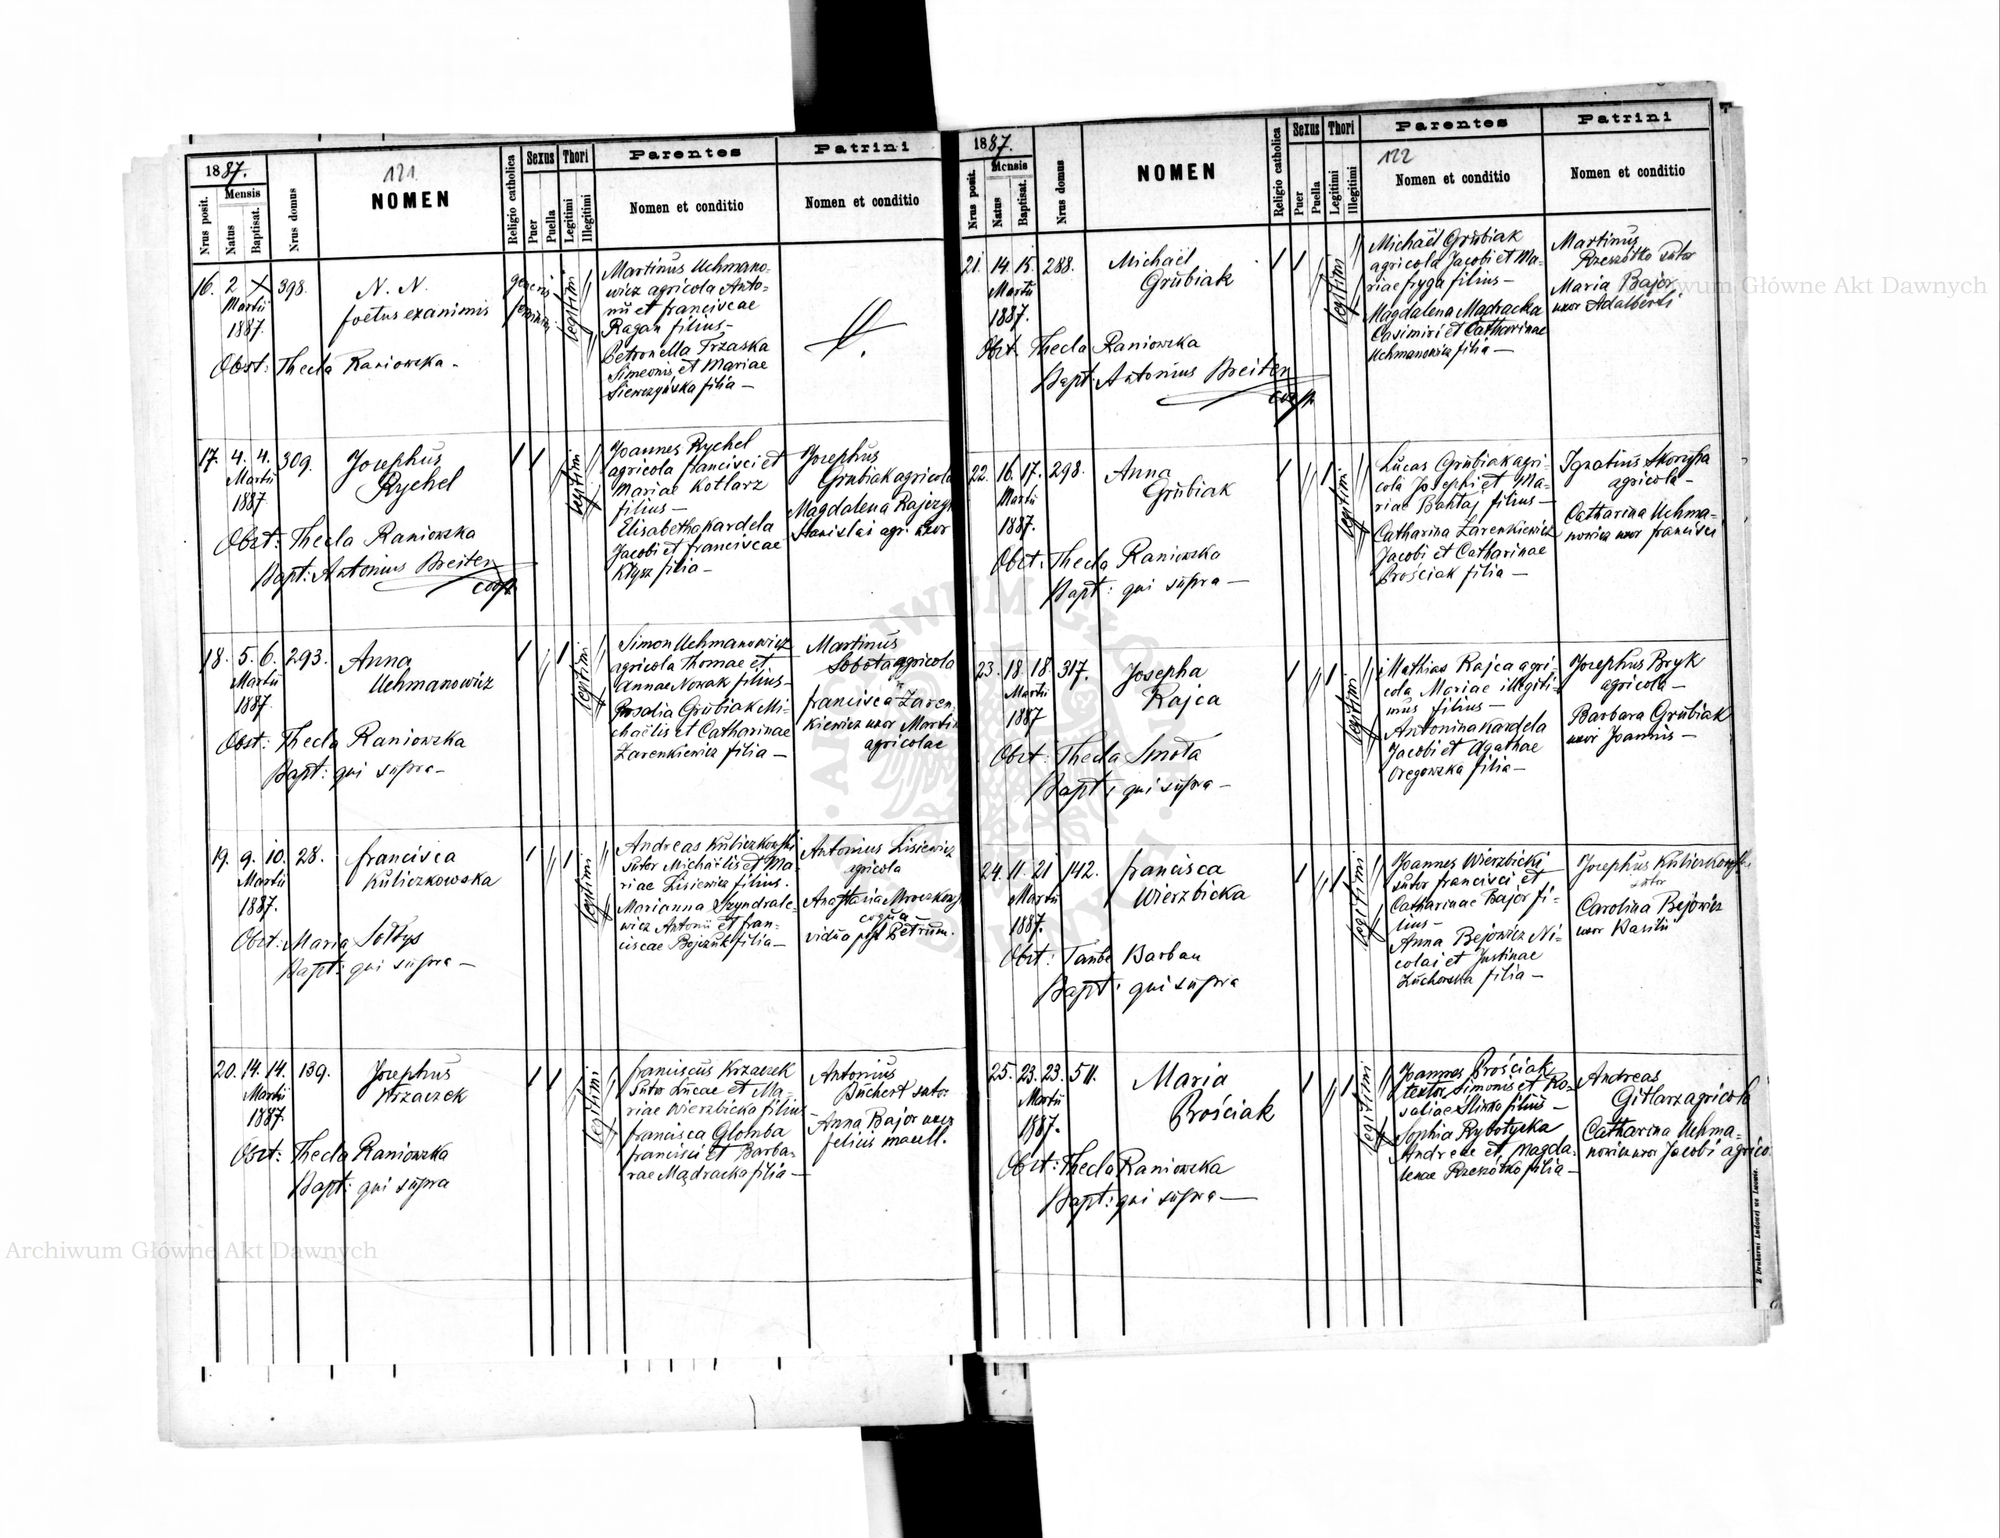 1887.
121.
Nrus posit.
Mensis
Natus
Baptisat.
Nrus domus
NOMEN
Religio catholica
Sexus
Puer
Puella
Thori
Legitimi
Illegitimi
Parentes
Nomen et conditio
Patrini
Nomen et conditio
16. 2 X 398.
Martii
1887.
N. N.
foetus exanimis
Obst: Thecla Raniowska.
generis
feminini
legitimi
Martinus Uchmano-
wicz agricola Anto-
nii et Franciscae
Ragan filius-
Petronella Trzaska
Simeonis et Mariae
filia -
17. 4. 4. 309.
Martii
1887
Josephus
Rychel
Obst: Thecla Raniowska
Bapt: Antonius Breiter
coop.
1 1
legitimi
Joannes Rychel
agricola Francisci et
Mariae Kotlarz
filius-
Elisabetha Kardela
Jacobi et Franciscae
Kłysz filia-
Josephus
Grubiak agricola
Magdalena
Stanislai agr. uxor
18. 5. 6. 293.
Martii
1887
Anna
Uchmanowicz
Obst: Thecla Raniowska
Bapt: qui supra-
1 1
legitimi
Simon Uchmanowicz
agricola Thomae et
Annae Nowak filius-
Rosalia Grubiak Mi-
chaëlis et Catharinae
Zarenkiewicz filia-
Martinus
Sobota agricola
Francisca Zaren-
kiewicz uxor Martini
agricolae
19. 9. 10. 28.
Martii
1887.
Francisca
Kuliczkowska
Obst: Maria Sołtys
Bapt: qui supra-
1 1
legitimi
Andreas Kuliczkowski
sutor Michaëlis et Ma-
riae Lisiewicz filius.
Marianna Szyndrale-
wicz Antonii et Fran-
ciscae filia-
Antonius Lisiewicz
agricola
Anastasia
vidua post Petrum.
20. 14. 14. 139.
Martii
1887.
Josephus
Krzaczek
Obst: Thecla Raniowska
Bapt: qui supra
1 1
legitimi
Franciscus Krzaczek
sutor Lucae et Ma-
riae Wierzbicka filius
Francisca Glomba
Francisci et Barba-
rae Mądracka filia-
Antonius
Buchert sutor
Anna Bajor uxor
Felicis macell.
1887.
122
Nrus posit.
Mensis
Natus
Baptisat.
Nrus domus
NOMEN
Religio catholica
Sexus
Puer
Puella
Thori
Legitimi
Illegitimi
Parentes
Nomen et conditio
Patrini
Nomen et conditio
21. 14. 15. 288.
Martii
1887.
Michaël
Grubiak
Obst. Thecla Raniowska
Bapt: Antonius Breiter
coop.
1 1
legitimi
Michaël Grubiak
agricola Jacobi et Ma-
riae Fryga filius-
Magdalena Mądracka
Casimiri et Catharinae
Uchmanowicz filia-
Martinus
Rzeszótko sutor
Maria Bajor
uxor Adalberti
22. 16. 17. 298.
Martii
1887.
Anna
Grubiak
Obst: Thecla Raniowska
Bapt: qui supra-
1 1
legitimi
Lucas Grubiak agri-
cola Josephi et Ma-
riae filius-
Catharina Zarenkiewicz
Jacobi et Catharinae
Brościak filia-
Ignatius Skorupa
agricola-
Catharina Uchma-
nowicz uxor Francisci
23. 18. 18. 317.
Martii
1887
Josepha
Rajca
Obst: Thecla Smoła
Bapt: qui supra-
1 1
legitimi
Mathias Rajca agri-
cola Mariae illegiti-
mus filius-
Antonina Kardela
Jacobi et Agathae
filia-
Josephus Bryk
agricola-
Barbara Grubiak
uxor Joannis-
24. 11. 21 142.
Martii
1887.
Francisca
Wierzbicka
Obst: Taube Barban
Bapt: qui supra
1 1
legitimi
Joannes Wierzbicki
sutor Francisci et
Catharinae Bajor fi-
lius-
Anna Bejowicz Ni-
colai et Justinae
Żuchowska filia-
Josephus Kuliczkowski
sutor
Carolina Bejowicz
uxor Basilii
25. 23. 23. 511.
Martii
1887.
Maria
Brościak
Obst: Thecla Raniowska
Bapt: qui supra-
1 1
legitimi
Joannes Brościak
textor Simonis et Ro-
saliae Śliwka filius-
Sophia Rybotycka
Andreae et Magda-
lenae Rzeszótko filia-
Andreas
Gitlarz agricola
Catharina Uchma-
nowicz uxor Jacobi agrico
Z Drukarni Ludowej we Lwowie.
Archiwum Główne Akt Dawnych
Archiwum Główne Akt Dawnych